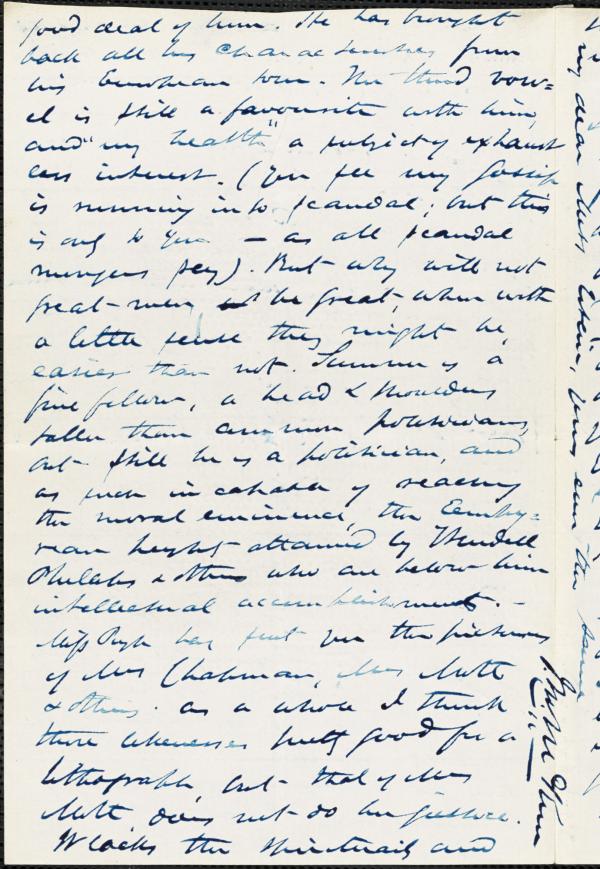 good deal of him. He has brought
back all his characteristics from
his European tour. The third vow=
el is still a favourite with him,
and "my health" a subject of exhaust
less interest. (You see my gossip
is running into scandal; but this
is only to you — as all scandal
mongers say). But why will not
great men be great, when with
a little sense they might be
easier than not. Sumner is a
fine fellow, a head & shoulders
taller than common politicians,
but still he is a politician, and
as such incapable of reaching
the moral eminence, the Empy=
rean height attained by Wendell
Phillips & others who are below him
intellectual accomplishments. —
Miss Pugh has sent you the pictures
of Mrs Chapman, Mrs Mott
& others. As a whole I think
these likenesses pretty good for a
lithograph, but that of Mrs
Mott does not do her justice.
It lacks the spirituality and
my dear Miss Estlin, yours ever the same